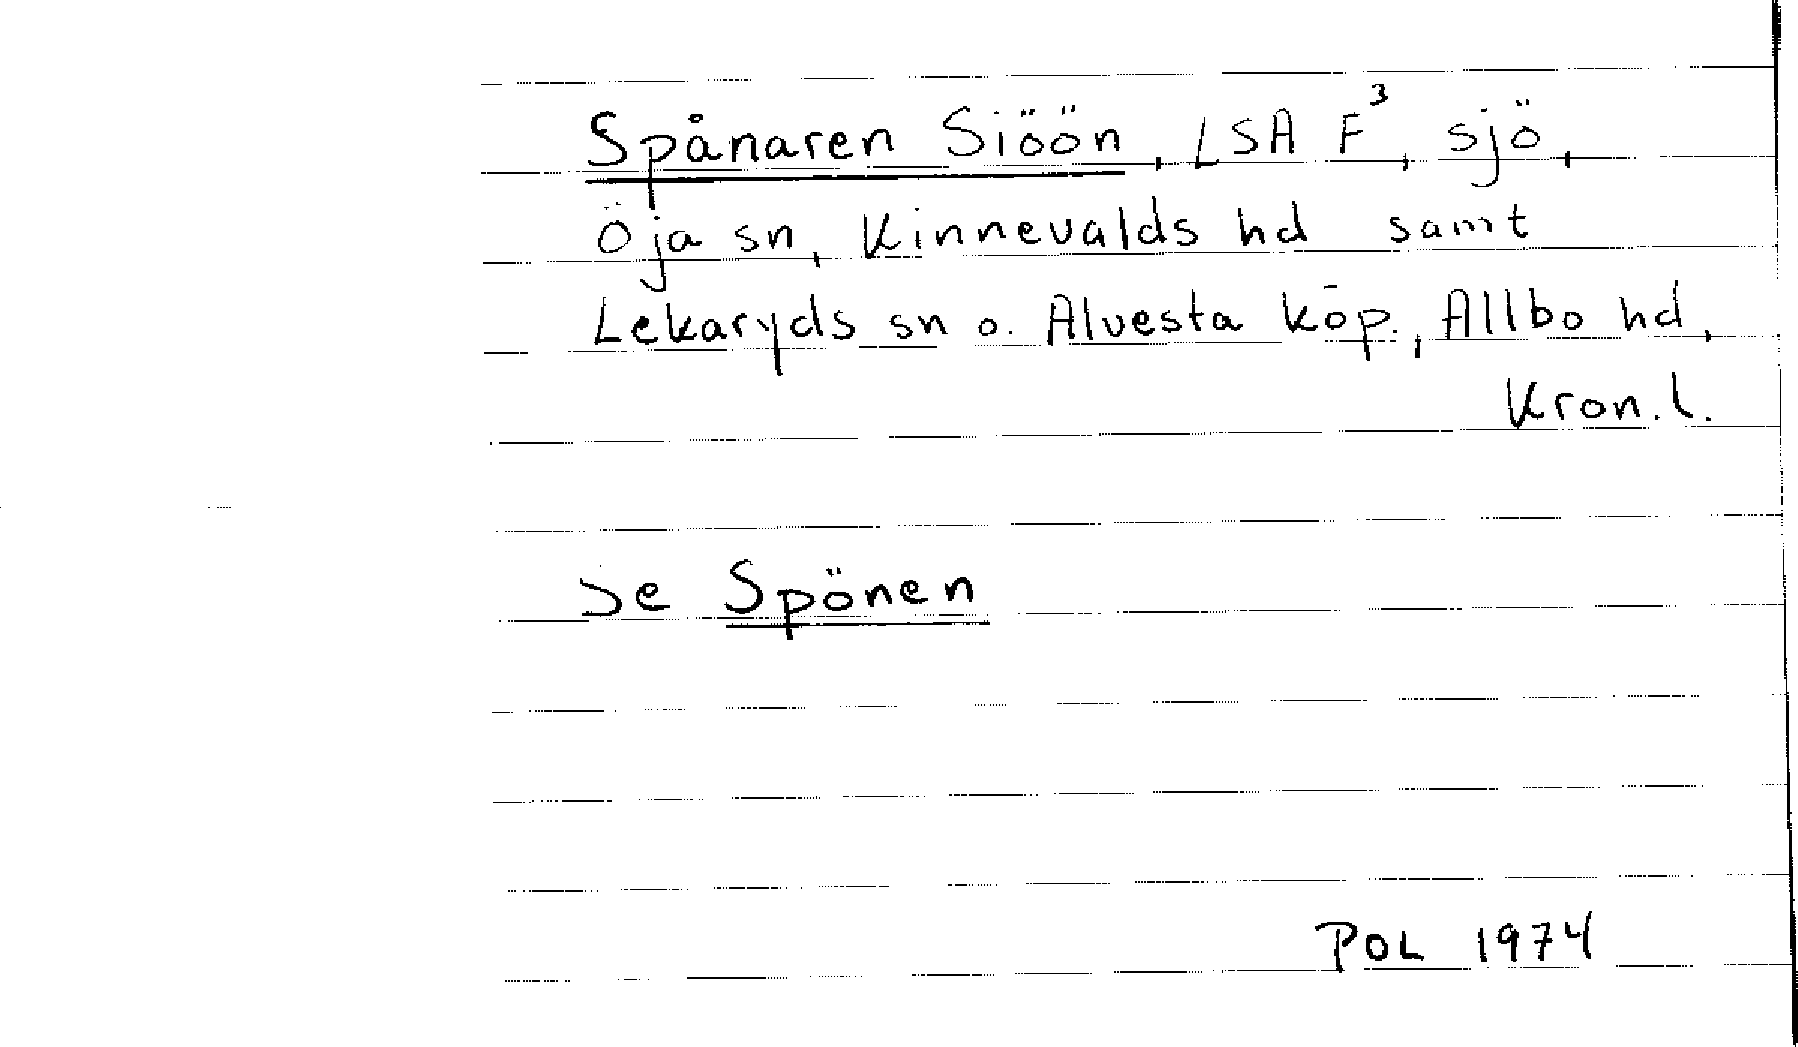 Spånaren Siöön, LSA F³, sjö,
Öja sn, Kinnevalds hd samt
Lekaryds sn o. Alvesta köp., Allbo hd,
Kron.l.
Se Spönen
POL 1974